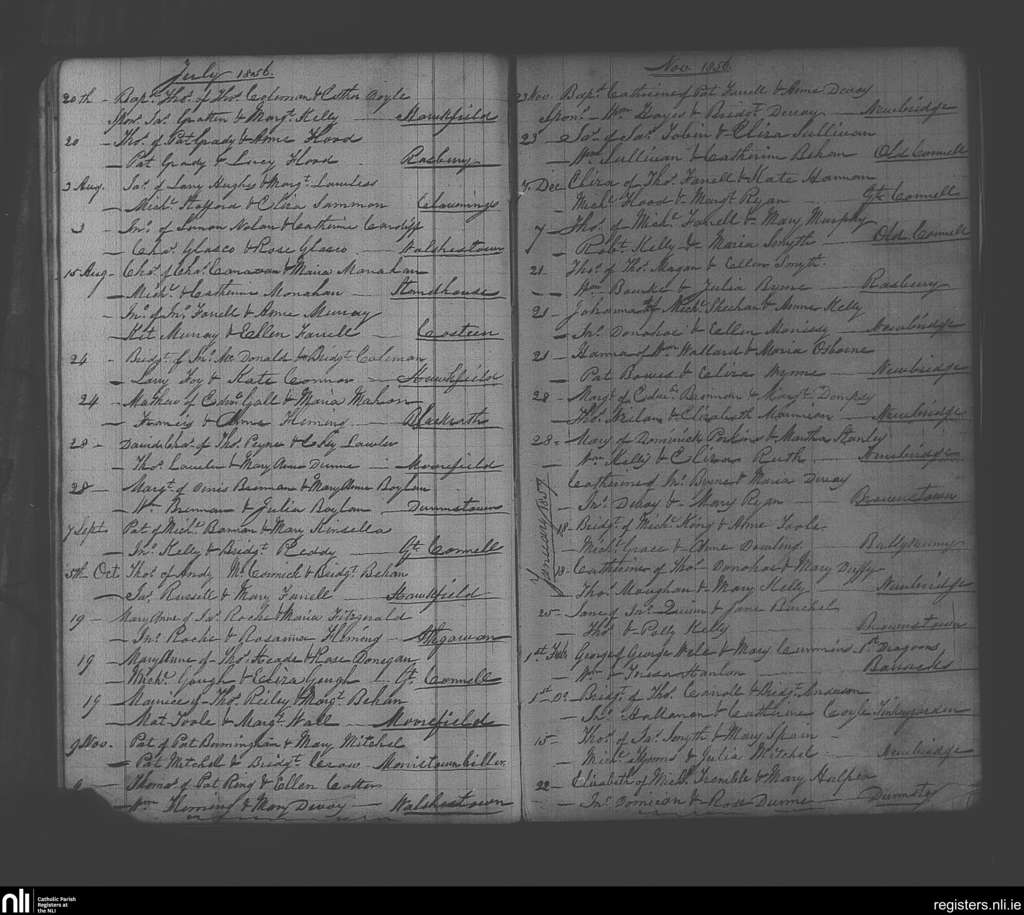 July 1856.
20th - Bapt. Thos. of Thos. & Esther Doyle
Spon. Jas. Gratten & Margt. Kelly - Hawkfield
20 - Thos. of Pat Grady & Anne Hood
- Pat Grady & Lucy Hood - Rosbery
3 Aug. Jas. of Lary Hughes & Margt. Lawless
- Michl. Stafford & Eliza Sammon - Clownings
3 - Jno. of Simon Nolan & Catherine Cardiff
- Chrs. Glasco & Rose Glasco - Walshestown
15 Aug - Chrs. of Chrs. & Maria Monahan
- Michl. & Catherine Monahan - Standhouse
- Jno. of Jno. Farrell & Anne Murray
- Kit Murray & Ellen Farrell -
24 - Bridgt. of Jno. Mc Donald & Bridgt. Coleman
- Lary Foy & Kate Connor - Hawkfield
24 - Mathew of Edwd. Gall & Maria Mahon
- Francis & Anne Fleming - Blackrath
28 - of Thos. Payne & Lawler
- Thos. Lawler & Mary Anne Dunne - Moorefield
28 - Margt. of Denis Brennan & Mary Anne Boylan
- Wm. Brennan & Julia Boylan - Dunnstown
7 Sept. Pat of Michl. & Mary Kinsella
- Jno. Kelly & Bridgt. Reddy - Gt. Connell
5th Oct Thos. of Andy Mc Cormick & Bridgt. Behan
- Jas. Russell & Mary Farrell - Hawkfield
19 - Mary Anne of Jas. Roche & Maria Fitzgerald
- Jno. Roche & Rosanna Fleming - Athgawan
19 - Mary Anne of Thos. Heade & Rose Donegan
- Michl. Gough & Eliza Gough - Gt. Connell
19 - Maurice of Thos. Reiley & Margt. Behan
- Mat Toole & Margt. Wall - Moorefield
9 Nov. - Pat of Pat Birmingham & Mary Mitchel
- Pat Mitchel & Bridgt. - Morristownbiller
Thomas of Pat Ring & Ellen
- Wm. Fleming & Mary Devoy - Walshestown
Nov 1856.
23 Nov. Bapt. Catherine of Pat Farrell & Anne Devoy
Spon. - Wm. Hayes & Bridgt. Devoy - Newbridge
23 - Jas. of Jas. Tobin & Eliza Sullivan
- Wm. Sullivan & Catherine Behan Old Connell
7 Dec Eliza of Thos. Farrell & Kate Hannon
- Michl. Hood & Margt. Ryan - Gt. Connell
7 - Thos. of Michl. Farrell & Mary Murphy
- Robt. Kelly & Maria Smyth - Old Connell
21 - Thos. of Thos. Magan & Ellen Smyth.
- Wm. Bourke & Julia Byrne - Rosbery
21 - Johanna of Michl. Sheehan & Anne Kelly
- Jno. Donohoe & Ellen - Newbridge
21 - Hanna of Wm. Wallard & Maria Osborne
- Pat Bowes & Eliza - Newbridge
28 - Margt. of Edwd. Bannon & Margt. Dempsy
- Thos. & Elizabeth - Newbridge
28 - Mary of Dominick & Martha Stanly
- Wm. Kelly & Eliza - Newbridge
January 1857
Catherine of Jno. Byrne & Maria Devoy
- Jno. Devoy & Mary Ryan - Brownstown
18 - Bridgt. of Michl. Kong & Anne Toole
- Michl. Grace & Anne Dowling -
18 - Catherine of Thos. Donohoe & Mary Duffy
- Thos. Maughan & Mary Kelly - Newbridge
25 - Jane of Jno. Quinn & Jane Burchel
- Thos. & Polly Kelly - Brownstown
1st Feb. George of George & Mary Cummins Dragoons
- Wm. & Hanlon - Barracks
1st Do. - Bridgt. of Thos. Carroll & Bridgt. Anderson
- Jno. & Catherine Coyle
15 - Thos. of Jas. Smyth & Mary Spain
- Michl. & Julia Mitchel - Newbridge
22 - Elizabeth of Michl. Tremble & Mary Halpin
- Jno. & Rose Dunne -
nli Catholic Parish
Registers at
the NLI
registers.nli.ie